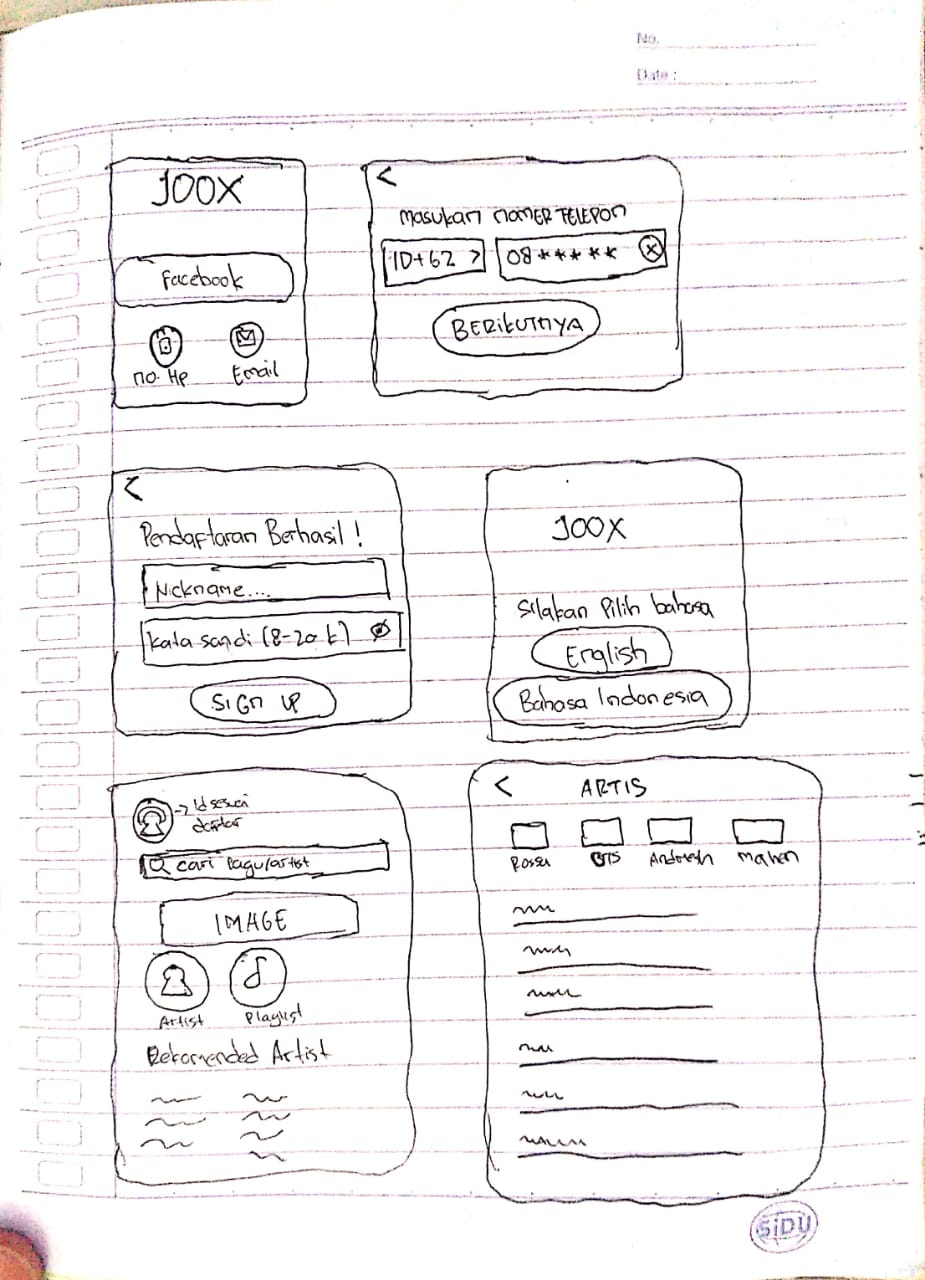 No.
Date :
JOOX
Facebook
no. Hp
Email
<
masukan nomer TELEPON
ID+62 >
08*****
BERikutnya
<
Pendaftaran Berhasil !
Nickname....
kata sandi (8-20 k)
SIGn UP
JOOX
Silakan Pilih bahasa
English
Bahasa Indonesia
-> Id sesuai
daftar
cari lagu/artist
IMAGE
Artist
Playlist
Rekomended Artist
< ARTIS
Rossa
BTS
Andmesh
Mahen
SiDU